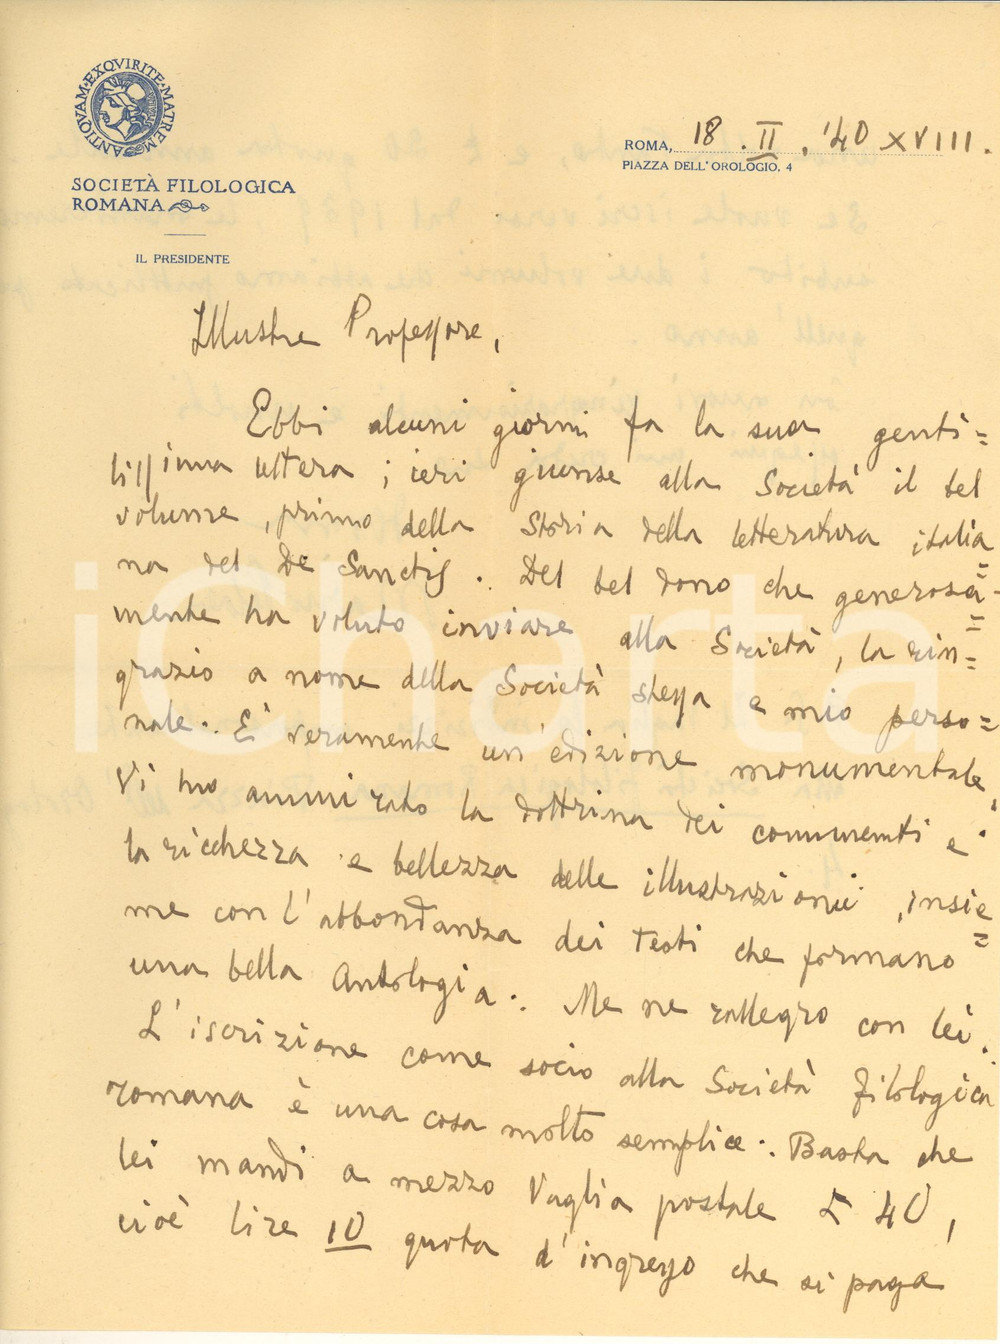 ANTIQVAM·EXQVIRITE·MATREM
SOCIETÀ FILOLOGICA
ROMANA
IL PRESIDENTE
ROMA, 18. II. '40 XVIII.
PIAZZA DELL'OROLOGIO, 4
Illustre Professore,
Ebbi alcuni giorni fa la sua genti=
lissima lettera; ieri giunse alla Società il bel
volume, primo della Storia della letteratura italia=
na del De Sanctis. Del bel dono che generosa=
mente ha voluto inviare alla Società, la rin=
grazio a nome della Società stessa e mio perso=
nale. E' veramente un'edizione monumentale.
Vi ho ammirato la dottrina dei commenti e
la ricchezza e bellezza delle illustrazioni, insie=
me con l'abbondanza dei testi che formano
una bella Antologia. Me ne rallegro con lei.
L'iscrizione come socio alla Società filologica
romana è una cosa molto semplice. Basta che
lei mandi a mezzo vaglia postale £ 40,
cioè lire 10 quota d'ingresso che si paga
iCharta